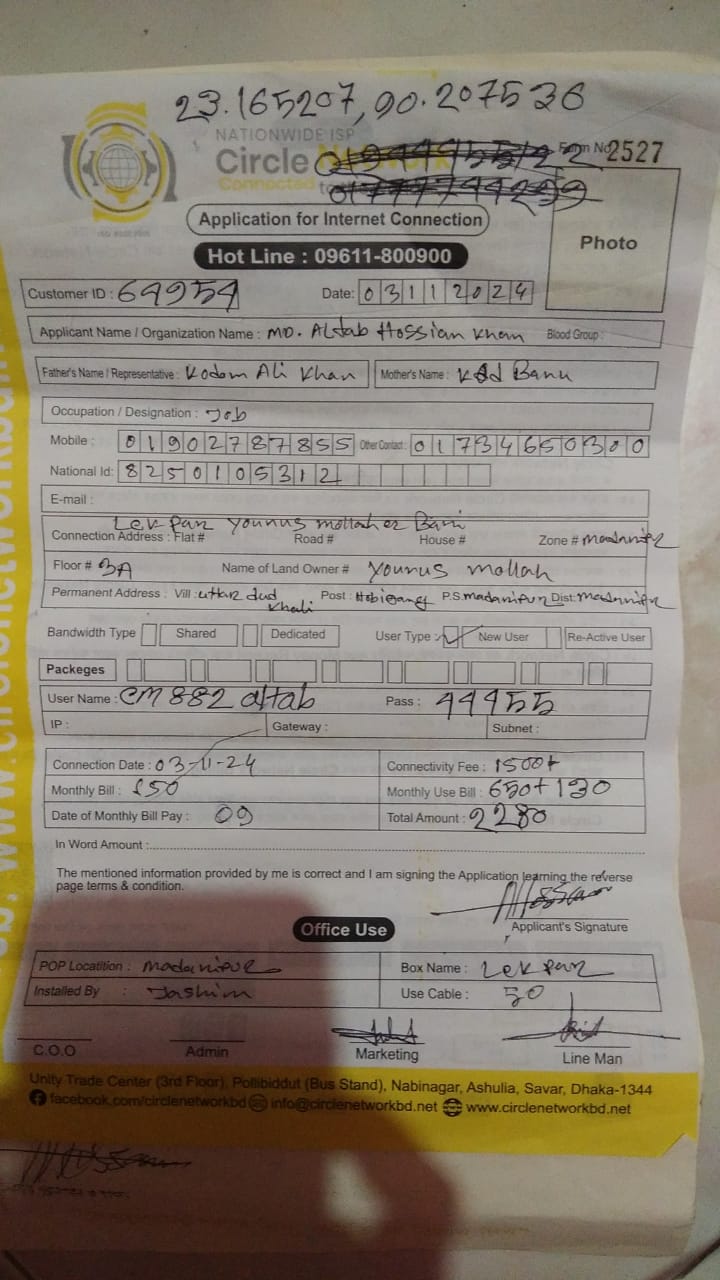 23.165207, 90.207536
NATIONWIDE ISP
Circle Network
Connected to
Form No 2527
Application for Internet Connection
Photo
Hot Line : 09611-800900
Customer ID : 64954 Date: 03112024
Applicant Name / Organization Name : MD. Altab Hossian Khan Blood Group :
Father's Name / Representative : Kodom Ali Khan Mother's Name : Banu
Occupation / Designation : Job
Mobile : 01902787855 Other Contact : 01734650300
National Id: 8250105312
E-mail :
Lek par Younus mollaher Bari
Connection Address : Flat # Road # House # Zone # Madaripur
Floor # 3A Name of Land Owner # Younus mollah
Permanent Address : Vill : uttar dud khali Post : Hobigang P.S. madaripur Dist: Madaripur
Bandwidth Type Shared Dedicated User Type : New User Re-Active User
Packeges
User Name : CM882 altab Pass : 44455
IP : Gateway : Subnet :
Connection Date : 03-11-24 Connectivity Fee : 1500+
Monthly Bill : 650 Monthly Use Bill : 650+130
Date of Monthly Bill Pay : 09 Total Amount : 2280
In Word Amount :
The mentioned information provided by me is correct and I am signing the Application learning the reverse
page terms & condition.
Applicant's Signature
Office Use
POP Locatition : Madaripur Box Name : Lek par
Installed By : Jashim Use Cable : 50
C.O.O Admin Marketing Line Man
Unity Trade Center (3rd Floor), Pollibiddut (Bus Stand), Nabinagar, Ashulia, Savar, Dhaka-1344
facebook.com/circlenetworkbd info@circlenetworkbd.net www.circlenetworkbd.net